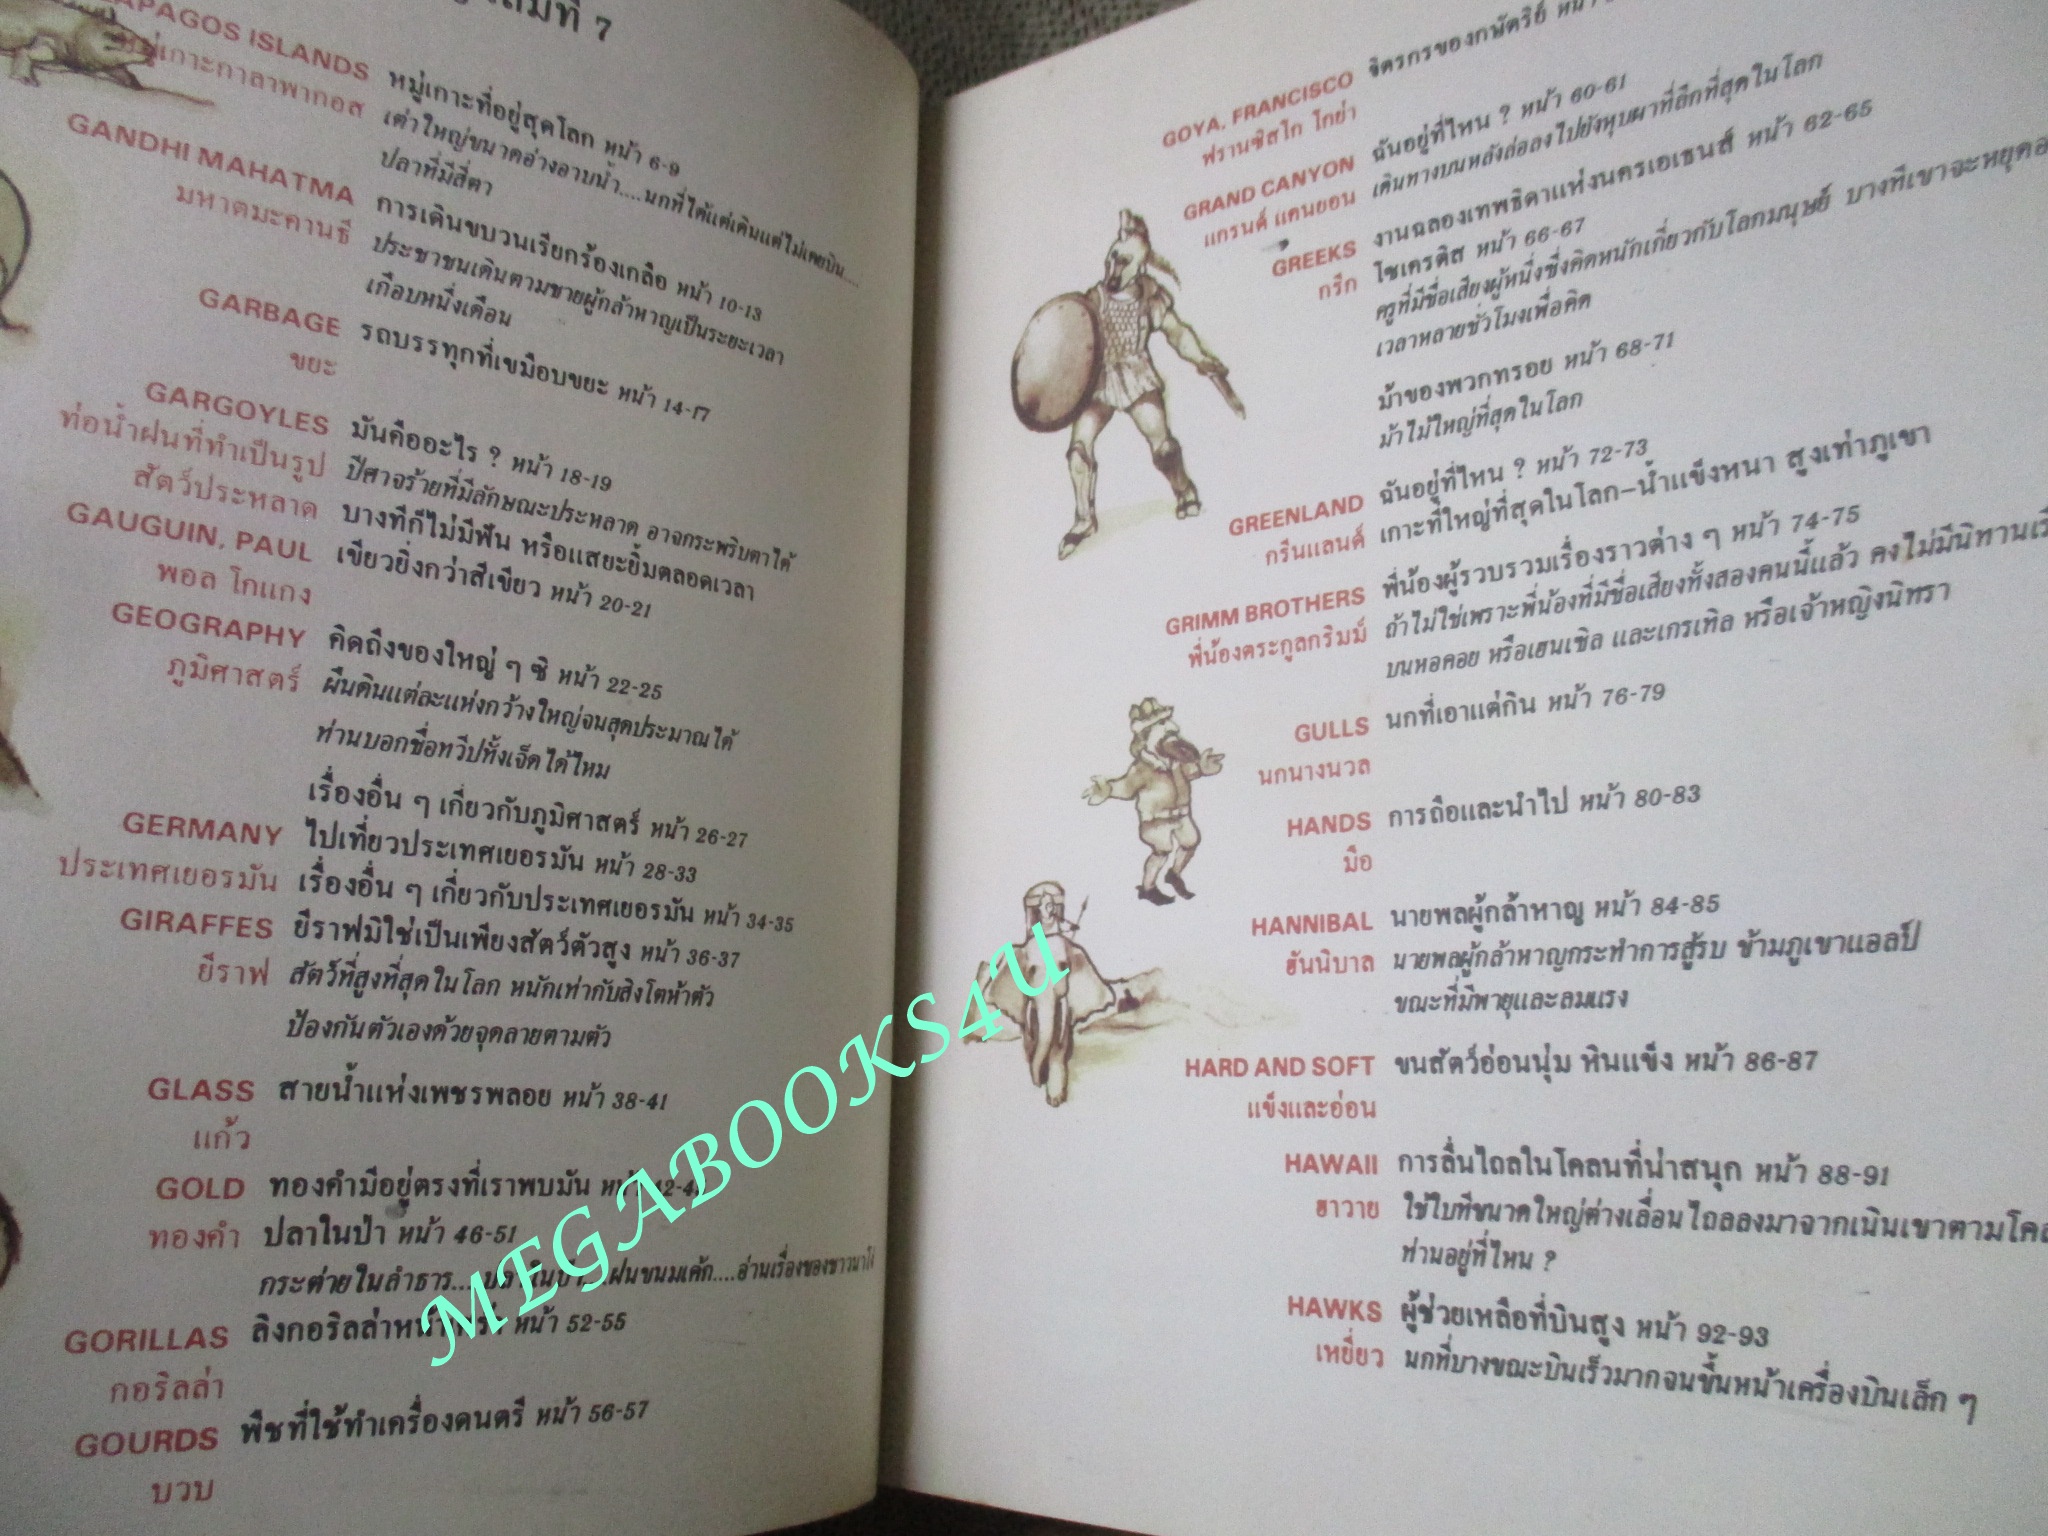 เล่มที่ 7
APAGOS ISLANDS หมู่เกาะที่อยู่สุดโลก หน้า 6-9
หมู่เกาะกาลาพากอส เต่าใหญ่ขนาดอ่างอาบน้ำ....นกที่ได้แต่เดินแต่ไม่เคยบิน....
ปลาที่มีสี่ตา
GANDHI MAHATMA การเดินขบวนเรียกร้องเกลือ หน้า 10-13
มหาตมะคานธี ประชาชนเดินตามชายผู้กล้าหาญเป็นระยะเวลา
เกือบหนึ่งเดือน
GARBAGE รถบรรทุกที่เขมือบขยะ หน้า 14-17
ขยะ
GARGOYLES มันคืออะไร ? หน้า 18-19
ท่อน้ำฝนที่ทำเป็นรูป ปีศาจร้ายที่มีลักษณะประหลาด อาจกระพริบตาได้
สัตว์ประหลาด บางทีก็ไม่มีฟัน หรือแสยะยิ้มตลอดเวลา
GAUGUIN, PAUL เขียวยิ่งกว่าสีเขียว หน้า 20-21
พอล โกแกง
GEOGRAPHY คิดถึงของใหญ่ ๆ ซิ หน้า 22-25
ภูมิศาสตร์ ผืนดินแต่ละแห่งกว้างใหญ่จนสุดประมาณได้
ท่านบอกชื่อทวีปทั้งเจ็ดได้ไหม
เรื่องอื่น ๆ เกี่ยวกับภูมิศาสตร์ หน้า 26-27
GERMANY ไปเที่ยวประเทศเยอรมัน หน้า 28-33
ประเทศเยอรมัน เรื่องอื่น ๆ เกี่ยวกับประเทศเยอรมัน หน้า 34-35
GIRAFFES ยีราฟมิใช่เป็นเพียงสัตว์ตัวสูง หน้า 36-37
ยีราฟ สัตว์ที่สูงที่สุดในโลก หนักเท่ากับสิงโตห้าตัว
ป้องกันตัวเองด้วยจุดลายตามตัว
GLASS สายน้ำแห่งเพชรพลอย หน้า 38-41
แก้ว
GOLD ทองคำมีอยู่ตรงที่เราพบมัน
ทองคำ ปลาในป่า หน้า 46-51
กระต่ายในลำธาร.... ฝนขนมเค้ก....อ่านเรื่องของชาวนา
GORILLAS ลิงกอริลล่า หน้า 52-55
กอริลล่า
GOURDS พืชที่ใช้ทำเครื่องดนตรี หน้า 56-57
บวบ
GOYA, FRANCISCO จิตรกรของกษัตริย์
ฟรานซิสโก โกย่า
GRAND CANYON ฉันอยู่ที่ไหน ? หน้า 60-61
แกรนด์ แคนยอน เดินทางบนหลังล่อลงไปยังหุบผาที่ลึกที่สุดในโลก
GREEKS งานฉลองเทพธิดาแห่งนครเอเธนส์ หน้า 62-65
กรีก โซเครติส หน้า 66-67
ครูที่มีชื่อเสียงผู้หนึ่งซึ่งคิดหนักเกี่ยวกับโลกมนุษย์ บางทีเขาจะหยุด
เวลาหลายชั่วโมงเพื่อคิด
ม้าของพวกทรอย หน้า 68-71
ม้าไม้ใหญ่ที่สุดในโลก
GREENLAND ฉันอยู่ที่ไหน ? หน้า 72-73
กรีนแลนด์ เกาะที่ใหญ่ที่สุดในโลก-น้ำแข็งหนา สูงเท่าภูเขา
GRIMM BROTHERS พี่น้องผู้รวบรวมเรื่องราวต่าง ๆ หน้า 74-75
พี่น้องตระกูลกริมม์ ถ้าไม่ใช่เพราะพี่น้องที่มีชื่อเสียงทั้งสองคนนี้แล้ว คงไม่มีนิทาน
บนหอคอย หรือเฮนเซิล และเกรเทิล หรือเจ้าหญิงนิทรา
GULLS นกที่เอาแต่กิน หน้า 76-79
นกนางนวล
HANDS การถือและนำไป หน้า 80-83
มือ
HANNIBAL นายพลผู้กล้าหาญ หน้า 84-85
ฮันนิบาล นายพลผู้กล้าหาญกระทำการสู้รบ ข้ามภูเขาแอลป์
ขณะที่มีพายุและลมแรง
HARD AND SOFT ขนสัตว์อ่อนนุ่ม หินแข็ง หน้า 86-87
แข็งและอ่อน
HAWAII การลื่นไถลในโคลนที่น่าสนุก หน้า 88-91
ฮาวาย ใช้ใบทีขนาดใหญ่ต่างเลื่อน ไถลลงมาจากเนินเขาตาม
ท่านอยู่ที่ไหน ?
HAWKS ผู้ช่วยเหลือที่บินสูง หน้า 92-93
เหยี่ยว นกที่บางขณะบินเร็วมากจนขึ้นหน้าเครื่องบินเล็ก ๆ
MEGABOOKS4U